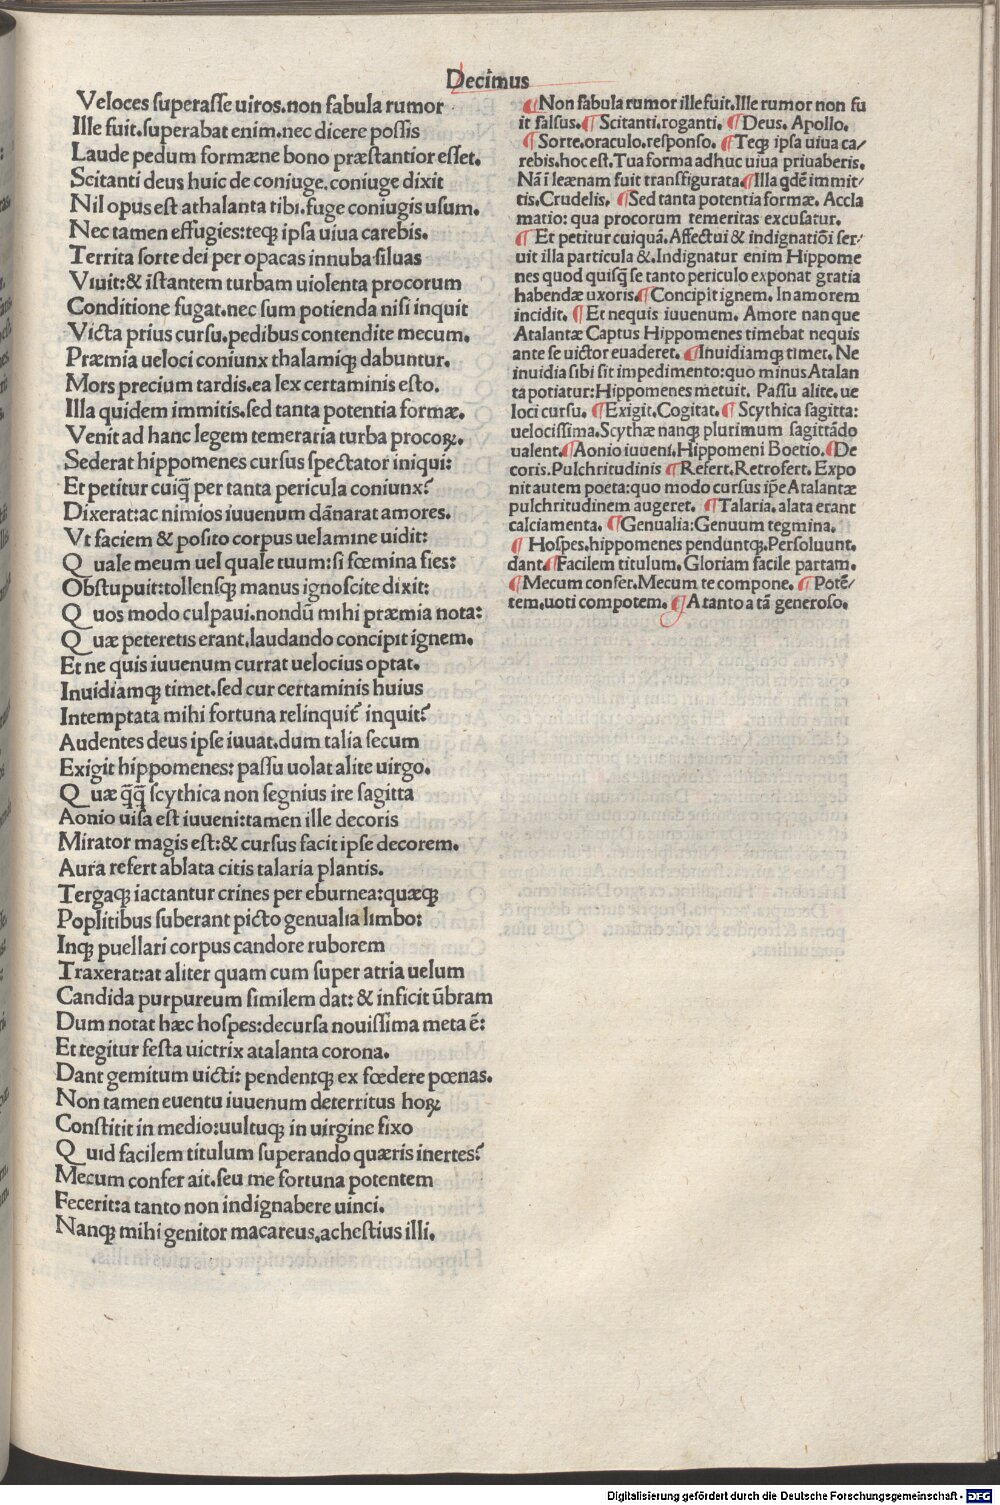 Decimus
Veloces superasse uiros.non fabula rumor
Ille fuit.superabat enim.nec dicere possis
Laude pedum formæne bono præstantior esset.
Scitanti deus huic de coniuge.coniuge dixit
Nil opus est athalanta tibi.fuge coniugis usum.
Nec tamen effugies:teqꝫ ipsa uiua carebis.
Territa sorte dei per opacas innuba siluas
Viuit:& īstantem turbam uiolenta procorum
Conditione fugat.nec sum potienda nisi inquit
Victa prius cursu.pedibus contendite mecum.
Præmia ueloci coniunx thalamiqꝫ dabuntur.
Mors precium tardis.ea lex certaminis esto.
Illa quidem immitis.sed tanta potentia formæ.
Venit ad hanc legem temeraria turba procoꝝ.
Sederat hippomenes cursus spectator iniqui:
Et petitur cuiq̄ per tanta pericula coniunx?
Dixerat:ac nimios iuuenum dānarat amores.
Vt faciem & posito corpus uelamine uidit:
Quale meum uel quale tuum:si fœmina fies:
Obstupuit:tollensqꝫ manus ignoscite dixit:
Quos modo culpaui.nondū mihi præmia nota:
Quæ peteretis erant.laudando concipit ignem.
Et ne quis iuuenum currat uelocius optat.
Inuidiamqꝫ timet.sed cur certaminis huius
Intemptata mihi fortuna relinquit? inquit?
Audentes deus ipse iuuat.dum talia secum
Exigit hippomenes: passu uolat alite uirgo.
Quæ q̄q̄ scythica non segnius ire sagitta
Aonio uisa est iuueni:tamen ille decoris
Mirator magis est:& cursus facit ipse decorem.
Aura refert ablata citis talaria plantis.
Tergaqꝫ iactantur crines per eburnea:quæqꝫ
Poplitibus suberant picto genualia limbo:
Inqꝫ puellari corpus candore ruborem
Traxerat:at aliter quam cum super atria uelum
Candida purpureum similem dat: & inficit ūbram
Dum notat hæc hospes:decursa nouissima meta ē:
Et tegitur festa uictrix atalanta corona.
Dant gemitum uicti: pendentqꝫ ex fœdere pœnas.
Non tamen euentu iuuenum deterritus hoꝝ
Constitit in medio:uultuqꝫ in uirgine fixo
Quid facilem titulum superando quæris inertes?
Mecum confer ait.seu me fortuna potentem
Fecerit:a tanto non indignabere uinci.
Nanqꝫ mihi genitor macareus.achestius illi.
¶Non fabula rumor ille fuit.Ille rumor non fu
it falsus.¶Scitanti.roganti.¶Deus. Apollo.
¶Sorte.oraculo.responso. ¶Teqꝫ ipsa uiua ca/
rebis.hoc est.Tua forma adhuc uiua priuaberis.
Nā ī leænam fuit transfigurata.¶Illa qdē immit/
tis.Crudelis. ¶Sed tanta potentia formæ. Accla
matio: qua procorum temeritas excusatur.
¶Et petitur cuiquā.Affectui & indignatiōi ser/
uit illa particula &.Indignatur enim Hippome
nes quod quisq̄ se tanto periculo exponat gratia
habendæ uxoris.¶Concipit ignem. In amorem
incidit. ¶Et nequis iuuenum. Amore nanque
Atalantæ Captus Hippomenes timebat nequis
ante se uictor euaderet. ¶Inuidiamqꝫ timet. Ne
inuidia sibi sit impedimento:quo minus Atalan
ta potiatur:Hippomenes metuit. Passu alite.ue
loci cursu. ¶Exigit.Cogitat.¶Scythica sagitta:
uelocissima.Scythæ nanqꝫ plurimum sagittādo
ualent.¶Aonio iuueni.Hippomeni Boetio.¶De
coris.Pulchritudinis ¶Refert.Retrofert. Expo
nit autem poeta:quo modo cursus ip̄e Atalantæ
pulchritudinem augeret. ¶Talaria.alata erant
calciamenta. ¶Genualia:Genuum tegmina.
¶Hospes.hippomenes penduntqꝫ.Persoluunt.
dant.¶Facilem titulum. Gloriam facile partam.
¶Mecum confer.Mecum te compone. ¶Potē/
tem.uoti compotem. ¶A tanto a tā generoso.
Digitalisierung gefördert durch die Deutsche Forschungsgemeinschaft - DFG